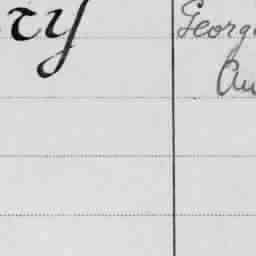 ry
Georg
Au